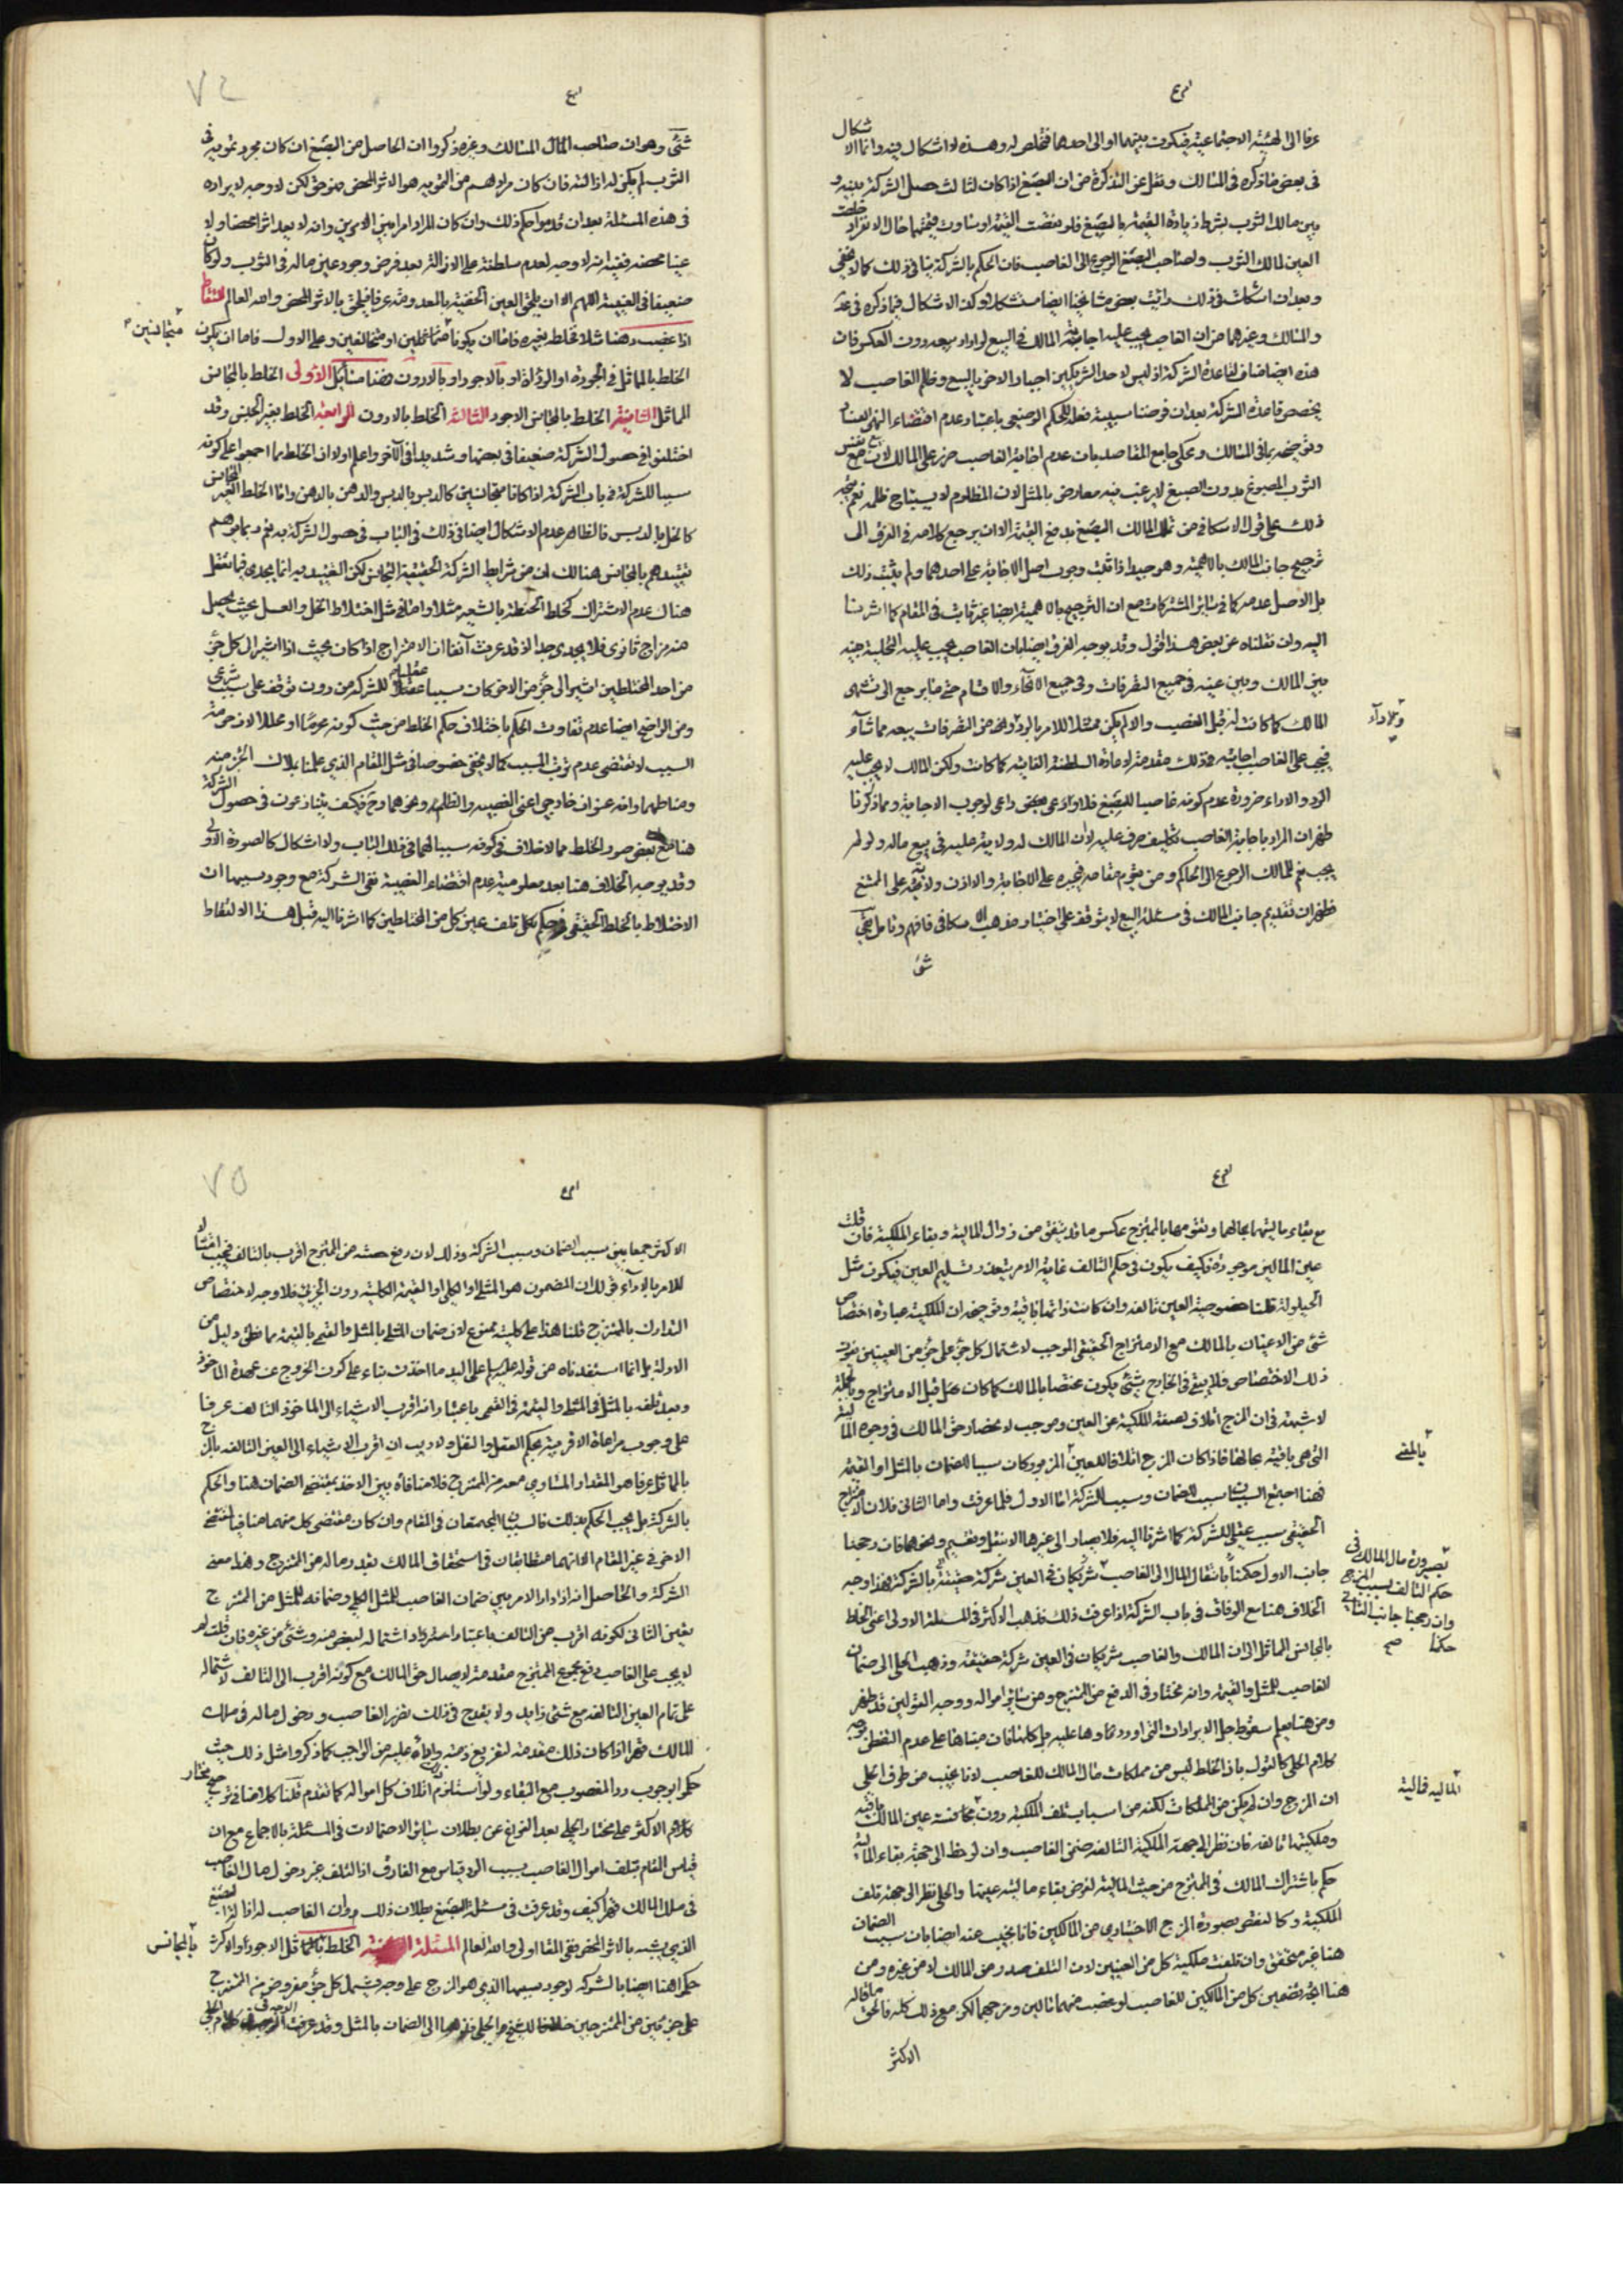 عرفا الى الهيئة الاجتماعية فيكون بينهما او الى احدهما فتخلص له وهذه لا اشكال فيه وانما الاشكال
فى بعض ما ذكره فى المسالك ونقل عن التذكرة من ان الصبغ اذا كان لثالث حصل الشركة بينه و
بين مالك الثوب بشرط زيادة القيمة بالصبغ فلو نقصت القيمة او ساوت قيمتهما حال الانفراد
العين لمالك الثوب ولصاحب الصبغ الرجوع الى الغاصب فان الحكم بالشركة ينافى ذلك كما لا يخفى
وبعد ان اشكلت فى ذلك رايت بعض مشايخنا ايضا مستشكلا وكذا الاشكال فيما ذكره فى
والمسالك وغيرهما من ان الغاصب يجب عليه اجابة المالك فى البيع لو اراد بيعه دون العكس فان
هذه ايضا مناف لقاعدة الشركة اذ ليس لاحد الشريكين اجبار الاخر بالبيع وظلم الغاصب لا
يخصص قاعدة الشركة بعد ان فرضنا سببية فعله للحكم الوضعى باعتبار عدم اقتضاء النهى الفساد
وتوضيحه بما فى المسالك ومحكى جامع المقاصد بان عدم اجابة الغاصب ضرر على المالك لان بيع نفس
الثوب المصبوغ بدون الصبغ لا يرغب فيه معارض بالمثل لان المظلوم لا يستباح ظلمه نعم يتجه
ذلك على قول الاسكافى من تملك المالك الصبغ بدفع القيمة الا ان يرجع كلامه فى الفرق الى
ترجيح جانب المالك بالاهمية وهو جيد اذا ثبت وجوب اصل الاجابة على احدهما ولم يثبت ذلك
بل الاصل عدمه كما فى سائر المشتركات مع ان الترجيح بالاهمية ايضا غير ثابت فى المقام كما اشرنا
اليه وان نقلناه عن بعض هذا اقول وقد يوجه الفرق ايضا بان الغاصب يجب عليه التخلية
بين المالك وبين عينه فى جميع التصرفات وفى جميع الآثار والاقسام حتى ما يرجع الى تشهى
المالك كما كانت له قبل الغصب والا لم يكن ممتثلا للامر بالرد ومن التصرفات بيعه مما شاء
وبلا داء
فيجب على الغاصب اجابته فى ذلك مقدمة لاعادة السلطنة الفائتة كما كانت ولكن المالك لا يجب عليه
الرد والاداء ضرورة عدم كونه غاصبا للصبغ فلا داعى لوجوب الاجابة ومما ذكرنا
ظهر ان المراد باجابة الغاصب تكليف صرف عليه لان المالك له ولاية عليه فى بيع ماله ولو لم
يجب نعم للمالك الرجوع الى الحاكم ومن يقوم مقامه فيجبره على الاجابة والاذن ولاية على الممتنع
فظهر ان تقديم جانب المالك فى مسئلة البيع لا يتوقف على اختيار مذهب الاسكافى فافهم وتامل بقى
شئ
٧٤
شئ وهو ان صاحب المسالك وغيره ذكروا ان الحاصل من الصبغ ان كان مجرد تمويه فى
الثوب لم يكن له ازالته فان كان مرادهم من التمويه هو الاثر المحض فهو حق لكن لا وجه لايراده
فى هذه المسئلة بعد ان قدموا حكم ذلك وان كان المراد امرا بين الامرين وانه لا يعد اثرا محضا ولا
عينا محضه ففيه انه لا وجه لعدم سلطنة على الازالة بعد فرض وجود عين ماله فى الثوب ولو كان
ضعيفا فى العينية اللهم الا ان يلحق العين الخفيفة بالمعدومة عرفا فيلحق بالاثر المحض والله العالم التقاط
اذا غصب دهنا مثلا فخلط بغيره فاما ان يكونا متماثلين او متخالفين وعلى الاول فاما ان يكون
متجانسين
الخلط بالمماثل فى الجودة او الرداءة او بالاجود او بالادون فهنا مسائل الاولى الخلط بالمجانس
المماثل الثانية الخلط بالمجانس الاجود الثالثة الخلط بالادون الرابعة الخلط بغير الجنس وقد
اختلفوا فى حصول الشركة ضعيفا فى بعضها وشديدا فى الآخر واعلم اولا ان الخلط مما اجمعوا على كونه
سببا للشركة فى باب الشركة اذا كانا متجانسين كالدبس بالدبس والدهن بالدهن واما الخلط الغير المجانس
كالخل بالدبس فالظاهر عدم الاشكال ايضا فى ذلك فى الباب فى حصول الشركة به نعم ربما يوهم
تقييدهم بالمجانس هنالك ان من شرايط الشركة الحقيقية التجانس لكن التقييد به انما يجدى فيما نقل
هناك عدم الاشتراك كخلط الحنطة بالشعير مثلا واما فى مثل اختلاط الخل والعسل بحيث يحصل
منه مزاج ثانوى فلا يجدى جدا اذ قد عرفت آنفا ان الامتزاج اذا كان بحيث اذا اشير الى كل جزء
من احد المختلطين اشير الى جزء من الاخر كان سببا عقليا للشركة من دون توقف على سبب شرعى
ومن الواضح ايضا عدم تفاوت الحكم باختلاف حكم الخلط من حيث كونه محرما او محللا لان حرمة
السبب لا تقتضى عدم ترتب المسبب كما لا يخفى خصوصا فى مثل المقام الذى علمنا بملاك الحرمة
ومناطها وانه عنوان خارجى اعنى الغصبية والظلم ونحوهما وح فكيف يتنازعون فى حصول الشركة
هنا مع بعض صور الخلط مما لا خلاف فى كونه سببا لها فى ذلك الباب ولا اشكال كالصورة الاولى
وقد يوجه الخلاف هنا بعد معلومية عدم اقتضاء الغصبية نفى الشركة مع وجود سببها ان
الاختلاط بالخلط الحقيقى فى حكم تلف عين كل من المختلطين كما اشرنا اليه قبل هذا الالتقاط
مع بقاء ماليتهما بحالهما وتقومها بالممتزج عكس ما قد يتفق من زوال المالية وبقاء الملكية فان قلت
عين المالين موجودة فكيف يكون فى حكم التالف غاية الامر يتعذر تسليم العين فيكون مثل
الحيلولة قلنا خصوصية العين تالفه وان كانت ذاتها باقية وتوضيحه ان الملكية عبارة اختصاص
شئ من الاعيان بالمالك مع الامتزاج الحقيقى الموجب لاشتمال كل جزء على جزء من العينين يفوت
ذلك الاختصاص فلا يبقى فى الخارج شئ يكون مختصا بالمالك كما كان قبل الامتزاج وبالجملة
لا شبهة فى ان المزج اتلاف لصفة الملكية عن العين وموجب لانحصار حق المالك فى وجوه المالية
التى هى باقية بحالها فاذا كان المزج اتلافا للعين المزبور كان سببا للضمان بالمثل او القيمة
بالمعنى
فهنا اجتمع السببان سبب للضمان وسبب للشركة اما الاول فلما عرفت واما الثانى فلان الامتزاج
الحقيقى سبب عقلى للشركة كما اشرنا اليه فلا يصار الى غيرها الا بنقل وتقسيم ونحوهما فان رجحنا
جانب الاول حكمنا بانتقال المال الى الغاصب شريكان فى العين شركة حقيقية بالشركة فهذا وجه
يصيرون مال المالك فى
حكم التالف بسبب المزج
وان رجحنا جانب الثانى
حكمنا صح
الخلاف هنا مع الوفاق فى باب الشركة اذا عرفت ذلك فذهب الاكثر فى المسئلة الاولى اعنى الخلط
بالمجانس المماثل الى ان المالك والغاصب شريكان فى العين شركة حقيقة وذهب الحلى الى ضمان
الغاصب للمثل والقيمة وانه مختار فى الدفع من الممتزج ومن سائر امواله ووجه القولين قد ظهر
ومن هنا يعلم سقوط جل الايرادات التى اوردوها عليه بل كلها فان مبناها على عدم التفطن لوجه
كلام الحلى كالقول بان الخلط ليس من مملكات مال المالك للغاصب لانا نجيب من طرف الحلى
ان المزج وان لم يكن من المملكات لكنه من اسباب تلف الملكية دون المالية فمالية عين المالك باقية
المالية فمالية
وملكيتها تالفه فان نظر الى جهة الملكية التالفه ضمن الغاصب وان لوحظ الى جهة بقاء المالية
حكم باشتراك المالك فى الممتزج من حيث المالية لفرض بقاء مالية عينها والحلى نظر الى جهة تلف
الملكية وكالنقض بصورة المزج الاختيارى من المالكين فانا نجيب عنه ايضا بان سبب الضمان
هنا غير متحقق وان تلفت ملكية كل من العينين لان التلف صدر من المالك لا من غيره ومن
هنا اتجه تضمين كل من المالكين للغاصب لو غصب منهما مالين ومزجهما لكن مع ذلك كله فالحق ما قاله
الاكثر
٧٥
الاكثر جمعا بين سبب الضمان وسبب الشركة وذلك لان دفع حصته من الممتزج اقرب بالتالف فيجب امتثالا
للامر بالاداء فى ذلك ان المضمون هو المثل الكلى او القيمة الكلية دون الجزئى فلا وجه لاختصاص
التدارك بالممتزج قلنا هذا على كليته ممنوع لان ضمان المثلى بالمثل والقيمى بالقيمة مما نطق دليل من
الادلة بل انما استفدناه من قوله على اليد ما اخذت بناء على كون الخروج عن عهدة الماخوذ
وبعد تلفه بالمثل فى المثلى والقيمة فى القيمى باعتبار انه اقرب الاشياء الى الماخوذ التالف عرفا
على وجوب مراعاة الاقربية بحكم العقل والنقل ولا ريب ان اقرب الاشياء الى العين التالفه
بالمماثل عرفا هو المقدار المساوى معه من الممتزج فلا منافاة بين الاخذ بمقتضى الضمان هنا والحكم
بالشركة بل يجب الحكم بذلك فالسببان المجتمعان فى المقام وان كان مقتضى كل منهما منافيا لمقتضى
الاخر فى غير المقام الا انهما متطابقان فى استحقاق المالك بقدر ماله من الممتزج وهذا معنى
الشركة والحاصل انه اذا دار الامر بين ضمان الغاصب للمثل الكلى وضمانه للمثل من الممتزج
يتعين الثانى لكونه اقرب من التالف باعتبار اشتماله لبعض منه وشئ من غيره فان قلت
لا يجب على الغاصب دفع مجموع الممتزج مقدمة لايصال حق المالك مع كونه اقرب الى التالف لاشتماله
على تمام العين التالفه مع شئ زايد ولا يقدح فى ذلك تضرر الغاصب ودخول ماله فى ملك
المالك قهرا اذا كان ذلك مقدمة لتفريغ ذمته عليه من الواجب كما ذكروا مثل ذلك حيث
حكموا بوجوب رد المغصوب مع البقاء ولو استلزم اتلاف كل امواله كما تقدم قلنا كلامنا فى توجيه
كلام الاكثر على مختار الحلى بعد الفراغ عن بطلان سائر الاحتمالات فى المسئلة بالاجماع مع ان
قياس المقام بتلف اموال الغاصب بسبب الرد قياس مع الفارق اذ التلف غير دخول مال الغاصب
فى ملك المالك قهرا كيف وقد عرفت فى مسئلة الصبغ بطلان ذلك وان الغاصب له ازالة الصبغ
الذى يشبه بالاثر المحض ففى المقام اولى والله العالم المسئلة الثانية الخلط بالمماثل الاجود والاكثر
بالمجانس
حكموا هنا ايضا بالشركة لوجود سببها الذى هو المزج على وجه يشمل كل جزء مفروض من الممتزج
على جزئين من الممتزجين خلافا للشيخ والحلى فذهبا الى الضمان بالمثل وقد عرفت الوجه فى كلام الحلى